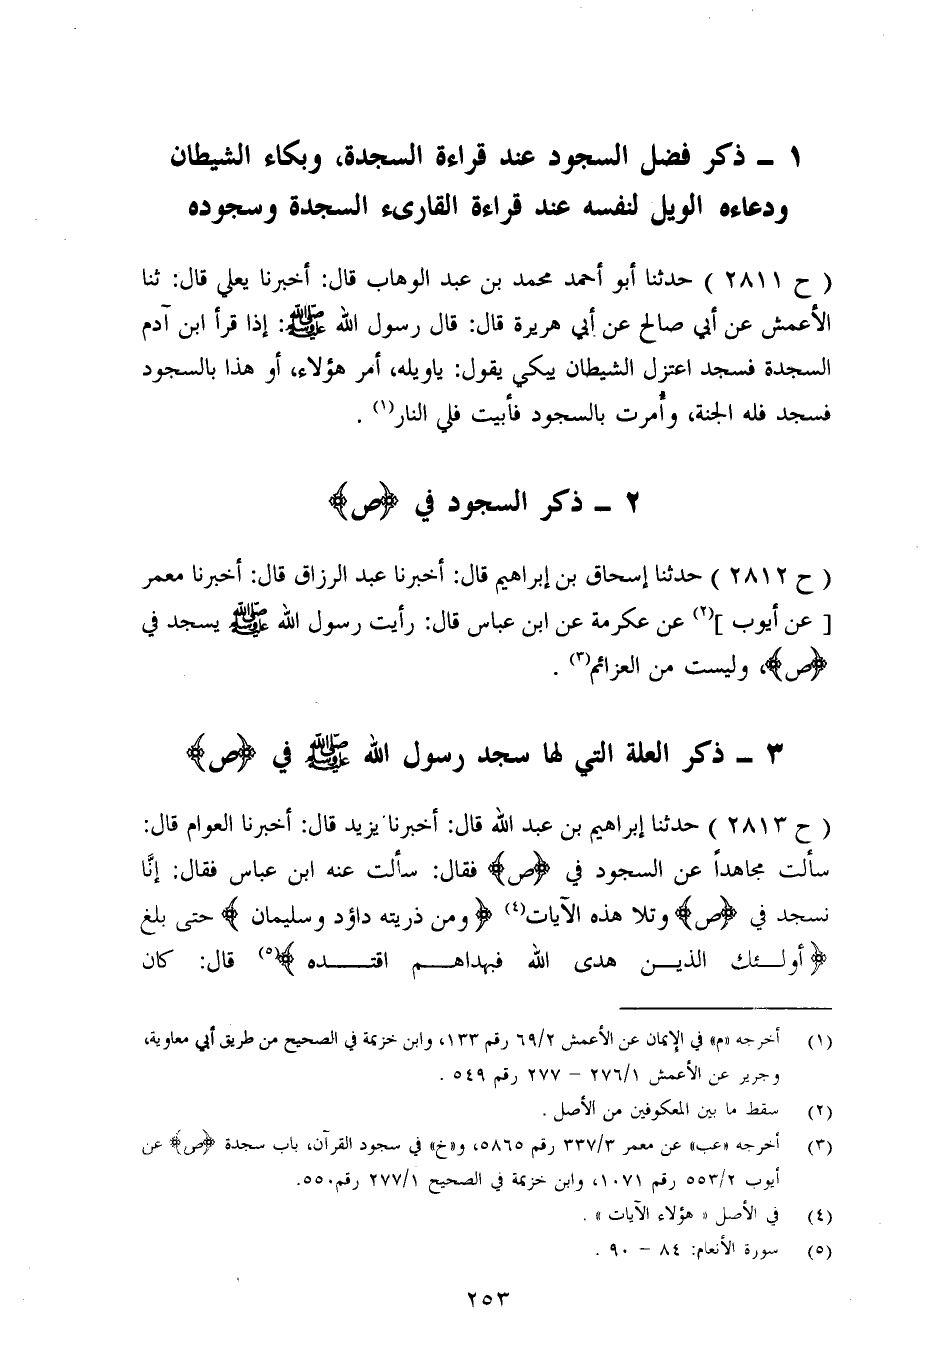 ١ ــ ذكر فضل السجود عند قراءة السجدة، وبكاء الشيطان
ودعاءه الويل لنفسه عند قراءة القارىء السجدة وسجوده
( ح ٢٨١١ ) حدثنا أبو أحمد محمد بن عبد الوهاب قال: أخبرنا يعلي قال: ثنا
الأعمش عن أبي صالح عن أبي هريرة قال: قال رسول الله ﷺ: إذا قرأ ابن آدم
السجدة فسجد اعتزل الشيطان يبكي يقول: ياويله، أمر هؤلاء، أو هذا بالسجود
فسجد فله الجنة، وأُمرت بالسجود فأبيت فلي النار(١) .
٢ ــ ذكر السجود في ﴿ص﴾
( ح ٢٨١٢ ) حدثنا إسحاق بن إبراهيم قال: أخبرنا عبد الرزاق قال: أخبرنا معمر
[ عن أيوب ](٢) عن عكرمة عن ابن عباس قال: رأيت رسول الله ﷺ يسجد في
﴿ص﴾، وليست من العزائم(٣) .
٣ ــ ذكر العلة التي لها سجد رسول الله ﷺ في ﴿ص﴾
( ح ٢٨١٣ ) حدثنا إبراهيم بن عبد الله قال: أخبرنا يزيد قال: أخبرنا العوام قال:
سألت مجاهداً عن السجود في ﴿ص﴾ فقال: سألت عنه ابن عباس فقال: إنَّا
نسجد في ﴿ص﴾ وتلا هذه الآيات(٤) ﴿ومن ذريته داؤد وسليمان ﴾ حتى بلغ
﴿أولـئك الذيـن هدى الله فبهداهـم اقتـده ﴾(٥) قال: كان
(١) أخرجه «م» في الإيمان عن الأعمش ٦٩/٢ رقم ١٣٣، وابن خزيمة في الصحيح من طريق أبي معاوية،
وجرير عن الأعمش ٢٧٦/١ – ٢٧٧ رقم ٥٤٩ .
(٢) سقط ما بين المعكوفين من الأصل .
(٣) أخرجه «عب» عن معمر ٣٣٧/٣ رقم ٥٨٦٥، و«خ» في سجود القرآن، باب سجدة ﴿ص﴾ عن
أيوب ٥٥٣/٢ رقم ١٠٧١، وابن خزيمة في الصحيح ٢٧٧/١ رقم٥٥٠.
(٤) في الأصل « هؤلاء الآيات » .
(٥) سورة الأنعام: ٨٤ – ٩٠ .
٢٥٣